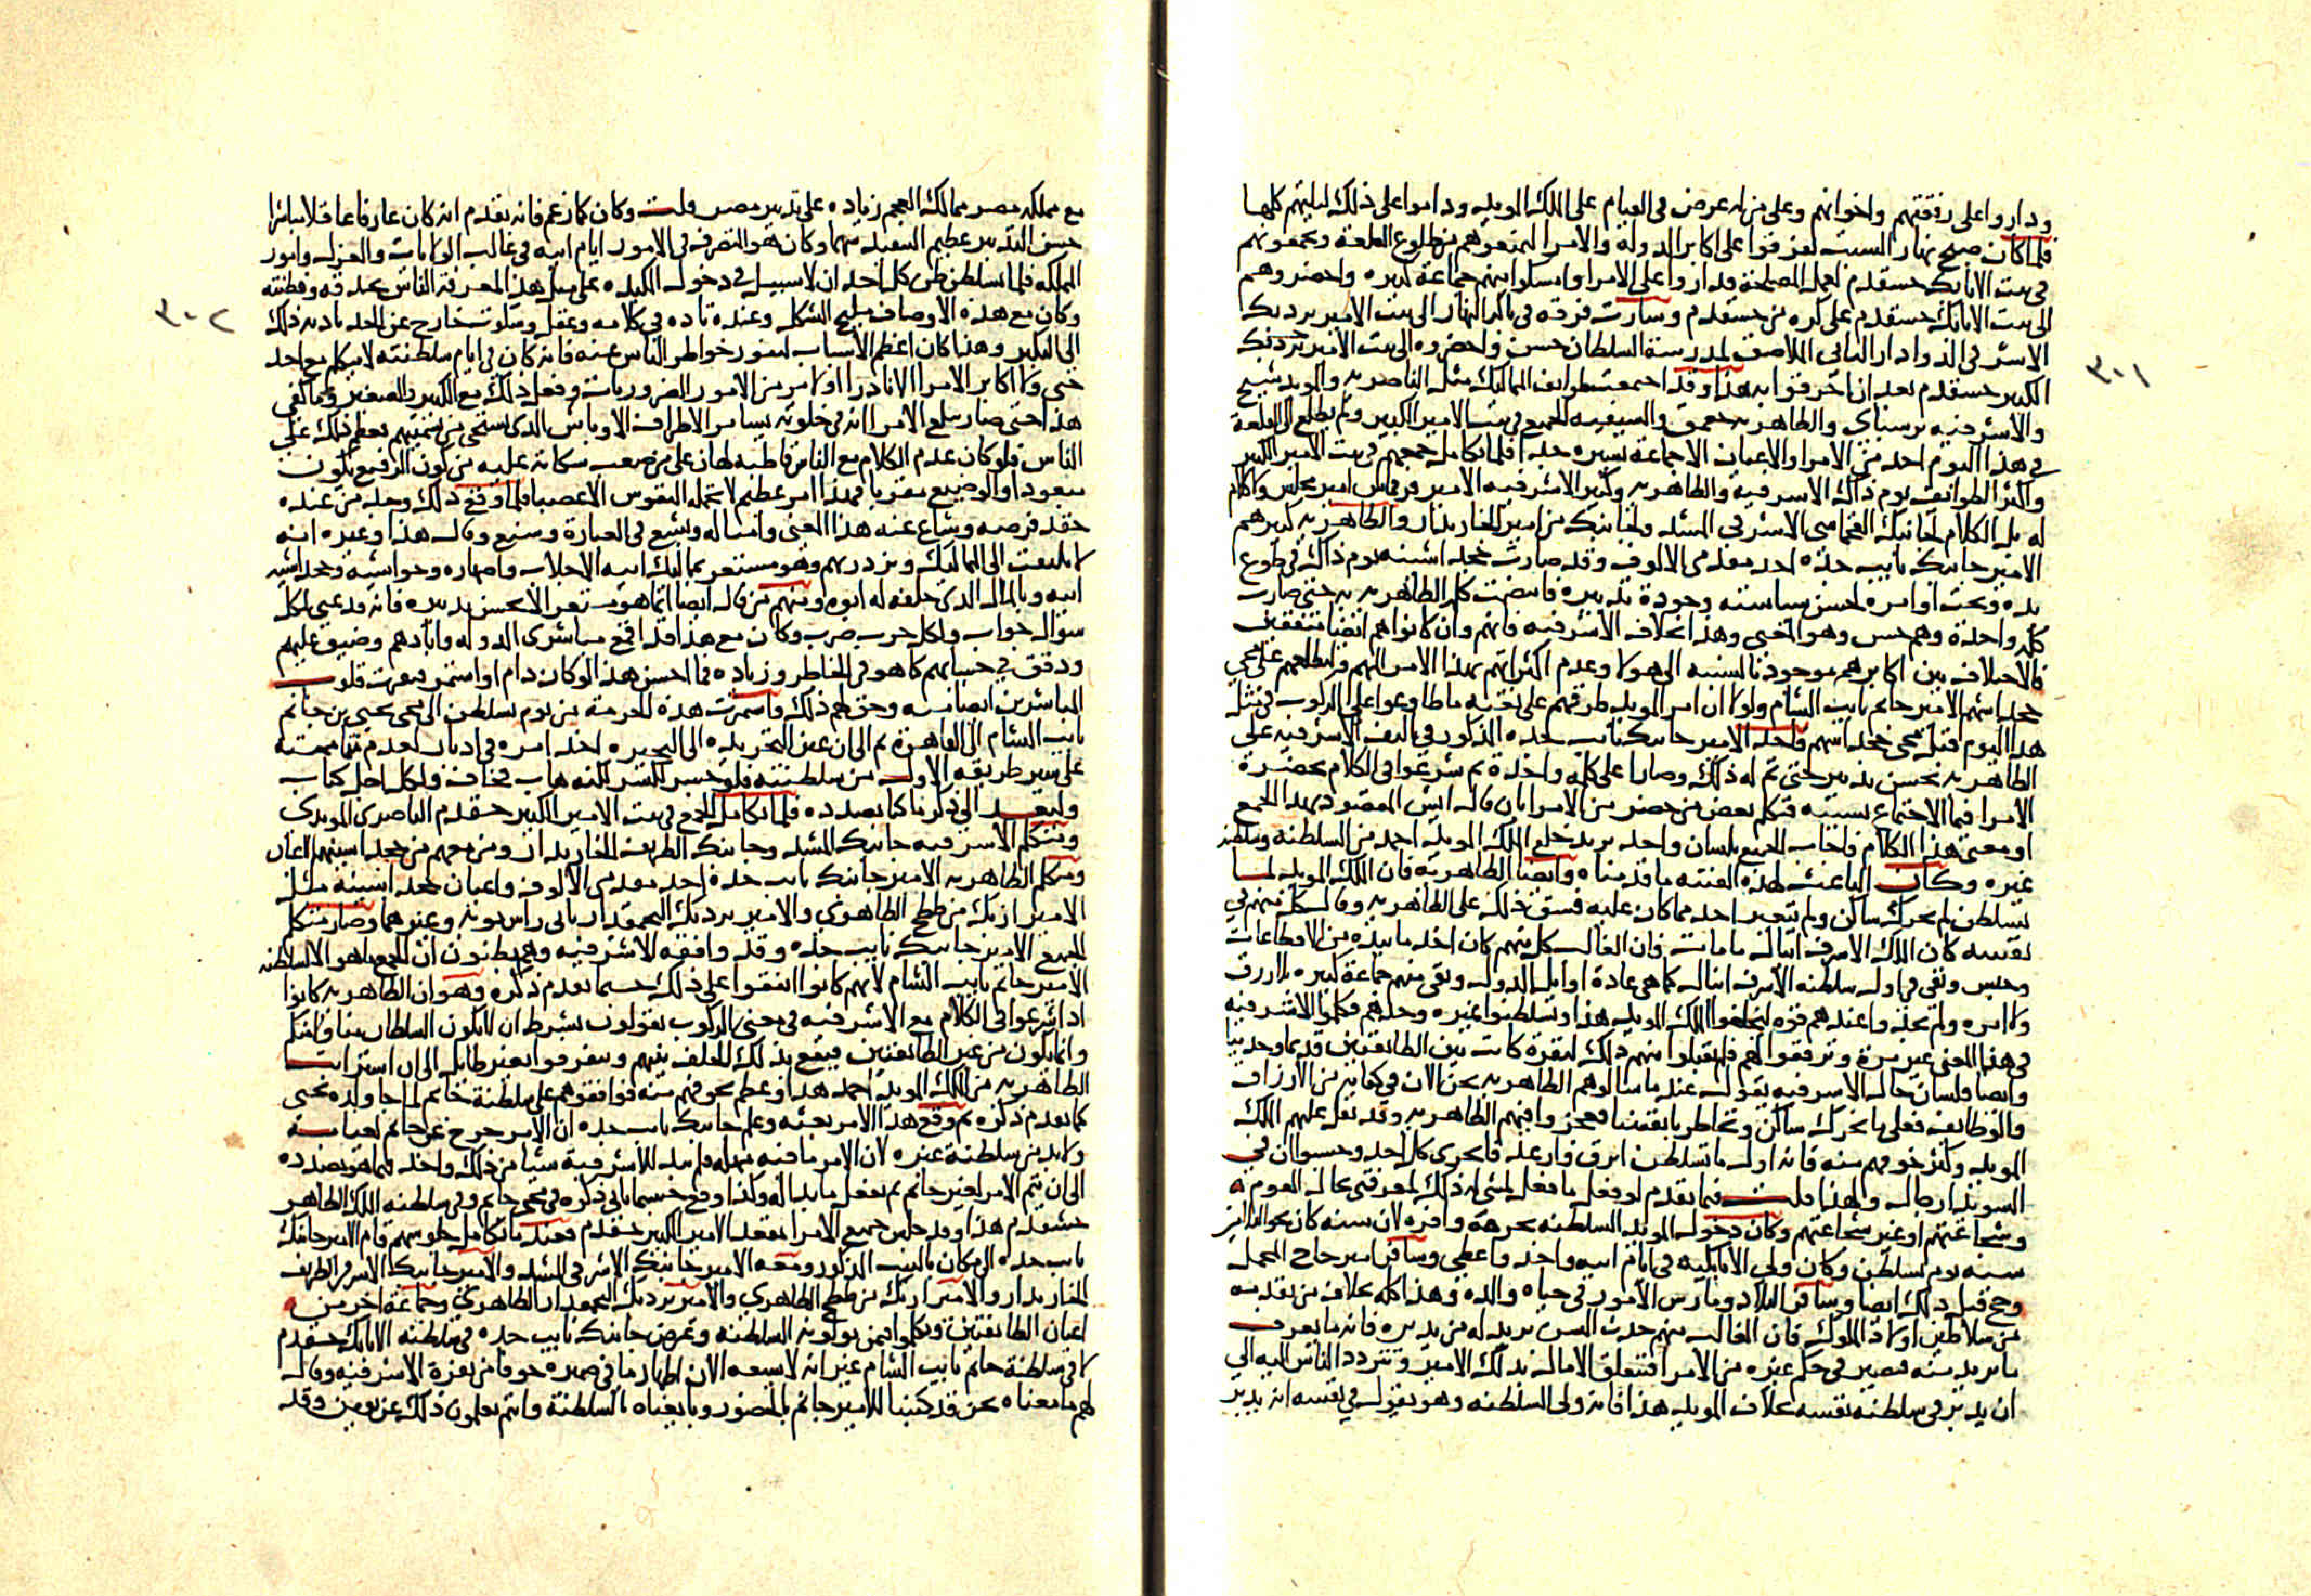 وداروا على رفقتهم واخوانهم وعلى من له غرض في القيام على الملك المويد وداموا على ذلك ليلتهم كلها
فلما كان صبح نهار السبت تفرقوا على اكابر الدولة والامرا ليمنعوهم من طلوع القلعة ويجمعونهم
في بيت الاتابك خشقدم لعمل المصلحة فداروا على الامرا وامسكوا منهم جماعة كبيره واحضروهم
الى بيت الاتابك خشقدم على كره من خشقدم وسارت فرقة في باكر النهار الى بيت الامير بردبك
الاشرفي الدوادار الثاني الملاصق لمدرسة السلطان حسن واحضروه الى بيت الامير
الكبير خشقدم بعد ان اخرقوا به هذا وقد اجتمعت طوايف المماليك مثل الناصرية والمويد شيخ
والاشرفيه برسباي والظاهريه جقمق والسيفيه الجميع في بيت الامير الكبير ولم يطلع الى القلعة
في هذا اليوم احد من الامرا والاعيان الا جماعة يسيره جدا فلما تكامل جمعهم في بيت الامير الكبير
واكثر الطوايف يوم ذاك الاشرفية والظاهريه وكبير الاشرفيه الامير قرقماس امير مجلس والكلام
له بل الكلام لجانبك القجماسي الاشرفي المشد ولجانبك من امير الخازندار والظاهريه كبيرهم
الامير جانبك نايب جده احد مقدمي الالوف وقد صارت خجداشيته يوم ذاك في طوع
يده وتحت اوامره لحسن سياسته وجودة تدبيره فانضمت كل الظاهريه به حتى صارت
كلمه واحدة وهم حس وهو المعنى وهذا بخلاف الاشرفيه فانهم وان كانوا هم ايضا متفقين
فالاختلاف بين اكابرهم موجود بالنسبه الى هولا وعدم اكتراثهم بهذا الامر المهم فرابطا لعهم على مجي
خجداشهم الامير جانم نايب الشام ولولا ان امر المويد طرقهم على بغته ما طاوعوا على الركوب في مثل
هذا اليوم قبل مجي خجداشهم فاخذ الامير جانبك نايب جده المذكور في تاليف الاشرفيه على
الظاهريه بحسن تدبير حتى تم له ذلك وصارا على كلمه واحدة ثم شرعوا في الكلام بحضرة
الامرا فيما الاجتماع بسببه فتكلم بعض من حضر من الامرا بان قال ايش المقصود بهذا الجمع
او معنى هذا الكلام فاجاب الجميع بلسان واحد نريد خلع الملك المويد احمد من السلطنة وسلطنة
غيره وكان الباعث لهذه الفتنه ما قدمناه وايضا الظاهرية فان الملك المويد لما
تسلطن لم يحرك ساكن ولم يتغير احد مما كان عليه فشق ذلك على الظاهريه وقال كل منهم في
نفسه كان الملك الاشرف اينال ما مات فان الغالب كل منهم كان اخذ ما بيده من الاقطاعات
وحبس ونفى في اول سلطنه الاشرف اينال كما هي عادة اوايل الدول وبقي منهم جماعة كبيره بلا رزق
ولا امره ولم يجدوا عندهم قوه ليخلعوا الملك المويد هذا ويسلطنوا غيره وحدهم فكلموا الاشرفيه
في هذا المعنى غير مرة وترفقوا لهم فلم يقبلوا منهم ذلك لنفرة كانت بين الطايفتين قديما وحديثا
وايضا فلسان حال الاشرفيه يقول عندما سالوهم الظاهريه نحن الان في كفايه من الارزاق
والوظايف فعلى ما نحرك ساكن ونخاطر بانفسنا فعجز وافيهم الظاهريه وقد ثقل عليهم الملك
المويد وكثر خوفهم منه فانه اول ما تسلطن ابرق وارعد فانخزى كل احد وحسبوا ان في
السويدا رجال ولهذا قلت فيما تقدم لو فعل ما فعل لمشى له ذلك لمعرفتي بحال القوم
وشجاعتهم او غير شجاعتهم وكان دخول المويد السلطنه بحرمة وافره لان سنه كان نحو الثلاثين
سنه يوم تسلطن وكان ولي الاتابكيه في ايام ابيه واخذ واعطى وسافر امير حاج المحمل
وحج قبل ذلك ايضا وسافر البلاد ومارس الامور في حياه والده وهذا كله بخلاف من تقدمه
من سلاطين اولاد الملوك فان الغالب منهم حدث السن يريد له من يدبره فانه ما يعرف
ما يريد منه فيصير في حكم غيره من الامرا فتتعلق الامال بذلك الامير وتتردد الناس اليه الى
ان يدبر في سلطنه نفسه بخلاف المويد هذا فانه ولي السلطنه وهو يقول في نفسه انه يدبر
٣٠١
مع مملكه مصر ممالك العجم زياده على تدبير مصر قلت وكان كما زعم فانه تقدم انه كان عارفا عاقلا مباشرا
حسن التدبير عظيم التنفيذ شهما وكان هو المتصرف في الامور ايام ابيه في غالب الولايات والعزل وامور
المملكه فلما تسلطن ظن كل احد ان لا سبيل في دخول المكيده على مثل هذا لمعرفة الناس بحذقه وفطنته
وكان مع هذه الاوصاف مليح الشكل وعنده تاده في كلامه وعقل وسكون خارج عن الحد يادبه ذلك
الى التكبر وهذا كان اعظم الاسباب لنفور خواطر الناس عنه فانه كان في ايام سلطنته لا يتكلم مع احد
حتى ولا اكابر الامرا الا نادرا او لامر من الامور الضروريات وفعل ذلك مع الكبير والصغير وما كفى
هذا حتى صار يبلغ الامرا انه في خلوته يسامر الاطراف الاوباش الذي يستحى من تسميتهم فعظم ذلك على
الناس فلو كان عدم الكلام مع الناس قاطبه لهان على من صعب سكاته عليه من كون الرفيع يكون
مبعودا والوضيع مقربا فهذا امر عظيم لا تحمله النفوس الا غصبا فلما وقع ذلك وجد من عنده
حقد فرصه وشاع عنه هذا المعنى وامثاله وبشع في العبارة وشنع وقال هذا وغيره انه
لا يلتفت الى المماليك ويزدريهم وهو مستعز بمماليك ابيه الاجلاب واصهاره وحواشيه وخجداشيه
ابيه وبالمال الذي خلفه له ابوه ومنهم من قال ايضا انما هو مستعز الا بحسن تدبيره فانه قد عبى لكل
سؤال جواب ولكل حرب ضرب وكان مع هذا قد اقمع مباشري الدوله وابادهم وضيق عليهم
ودقق في حسابهم كما هو في الخاطر وزياده فما احسن هذا لو كان دام او استمر فنفرت قلوب
المباشرين ايضا منه وحق لهم ذلك واستمرت هذه الحرمة من يوم تسلطن الى مجي يحيى بن جانم
نايب الشام الى القاهرة ثم الى ان عين التجريدة الى البحيره اخذ امره في ادبار لعدم مشيه
على سير طريقه الاول من سلطنته فلو جسر لكسر لكنه هاب فخاف ولكل اجل كتاب
وليعد الى ذكر ما كنا بصدده فلما تكامل الجمع في بيت الامير الكبير خشقدم الناصري المويدي
ومتكلم الاشرفيه جانبك المشد وجانبك الظريف الخازندار ومن معهم من خجداشيتهم الاعيان
ومتكلم الظاهريه الامير جانبك نايب جدة احد مقدمي الالوف واعيان خجداشيته مثل
الامير ازبك من ططخ الظاهري والامير بردبك البجمقدار ثاني راس نوبه وغيرهما وصار متكلم
الجميع الامير جانبك نايب جده وقد وافقه الاشرفيه وهم يظنون ان الجمع ما هو الا لسلطنه
الامير جانم نايب الشام لانهم كانوا اتفقوا على ذلك حسبما تقدم ذكره وهو ان الظاهريه كانوا
اذا شرعوا في الكلام مع الاشرفيه في معنى الركوب يقولون بشرط ان لا يكون السلطان منا ولا منكم
وانما يكون من غير الطايفتين فيقع بذلك الخلف بينهم ويتفرقوا بغير طايل الى ان استرابت
الظاهريه من الملك المويد احمد هذا وعظم تخوفهم منه فوافقوهم على سلطنة جانم لما جا ولده يحيى
كما تقدم ذكره ثم وقع هذا الامر بغته وعلم جانبك نايب جده ان الامر خرج عن جانم لغيابه
ولا بد من سلطنة غيره لان الامر ما فيه مهله فلم يبد للاشرفية شيا من ذلك واخذ فيما هو بصدده
الى ان يتم الامر لغير جانم ثم يفعل ما بدا له وكذا وقع حسبما ياتي ذكره في مجي جانم وفي سلطنه الملك الظاهر
خشقدم هذا وقد جلس جميع الامرا بمقعد الامير الكبير خشقدم فعند ما تكامل جلوسهم قام الامير جانبك
نايب جده الى مكان بالبيت المذكور ومعه الامير جانبك الاشرفي المشد والامير جانبك الاشرفي الظريف
الخازندار والامير ازبك من ططخ الظاهري والامير بردبك البجمقدار الظاهري وجماعة اخر من
اعيان الطايفتين وتكلموا فيمن يولونه السلطنه وغرض جانبك نايب جده في سلطنه الاتابك خشقدم
لا في سلطنة جانم نايب الشام غير انه لا يسعه الان اظهار ما في ضميره خوفا من نفرة الاشرفيه وقال
لهم ما معناه نحن قد كتبنا للامير جانم بالحضور وبايعناه بالسلطنة وانتم تعلمون ذلك عن يقين وقد
٣٠٢